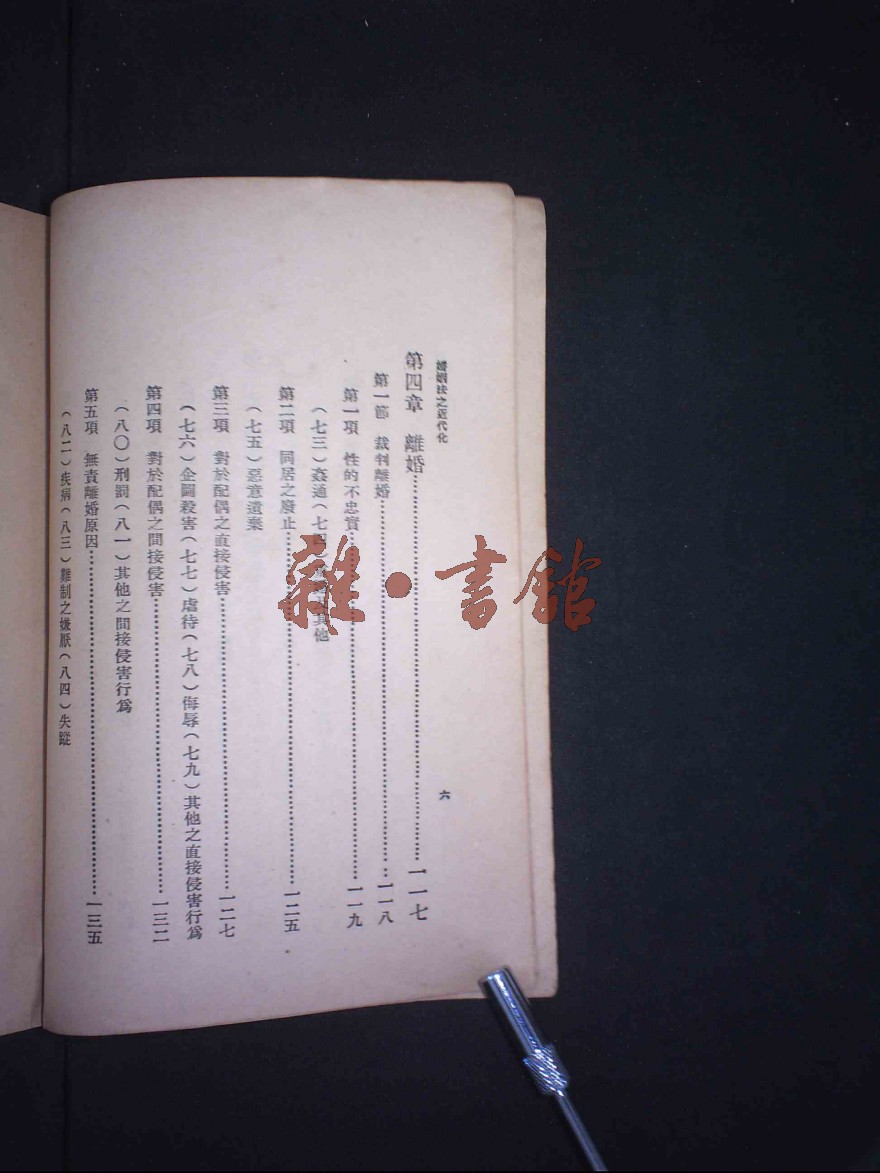 婚姻法之近代化
第四章 離婚……一一七
第一節 裁判離婚……一一八
第一項 性的不忠實……一一九
(七三)姦通(七四)其他
第二項 同居之廢止……一二五
(七五)惡意遺棄
第三項 對於配偶之直接侵害……一二七
(七六)企圖殺害(七七)虐待(七八)侮辱(七九)其他之直接侵害行爲
第四項 對於配偶之間接侵害……一三二
(八〇)刑罰(八一)其他之間接侵害行爲
第五項 無責離婚原因……一三五
(八二)疾病(八三)難制之嫌厭(八四)失蹤
六
雜·書館